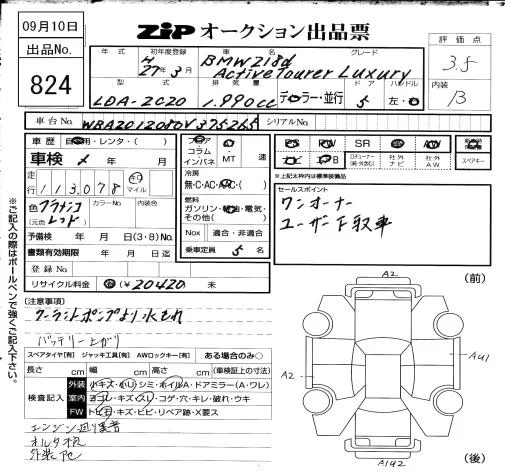 09月10日
ZIP オークション出品票
出品No.
824
年式
初年度登録
車名
グレード
評価点
H
27年3月
BMW218d
Active Tourer Luxury
3.5
型式
排気量
ドア
ハンドル
内装
LDA-2C20
1,990cc
ディーラー・並行
5
左・右
B
車台No.
シリアルNo.
車歴
自家用・レンタ・( )
フロア
コラム
インパネ
AT
・
MT
速
PS
PW
SR
AW
車検
年
月
ナビ
社外
AW
スペアキー
走行
113,078
キロ
マイル
冷房
無・C・AC・AAC・( )
※上記太枠内は標準装備品
色
レッド
(元色
)
カラーNo.
内装色
燃料
ガソリン・軽油・電気・
その他( )
セールスポイント
ワンオーナー
ユーザー下取車
予備検
年
月
日(3・8)No.
Nox
適合・非適合
書類有効期限
年
月
日迄
乗車定員
5名
登録No.
リサイクル料金
¥20420
未
※ご記入の際はボールペンで強くご記入下さい。
(注意事項)
クーラントポンプより水もれ
バッテリー上がり
スペアタイヤ【有】 ジャッキ工具【有】 AWロックキー【有】
ある場合のみ○
長さ
cm
幅
cm
高さ
cm
(車検証上の寸法)
検査記入
外装
小キズ・小リ・シミ・ホイルA・ドアミラー(A・ワレ)
室内
ヨゴレ・キズ・スレ・コゲ・穴・キレ・破れ・ウキ
FW
トビ石・キズ・ヒビ・リペア跡・X要ス
外装
(前)
A2
A2
AU1
A1U2
(後)